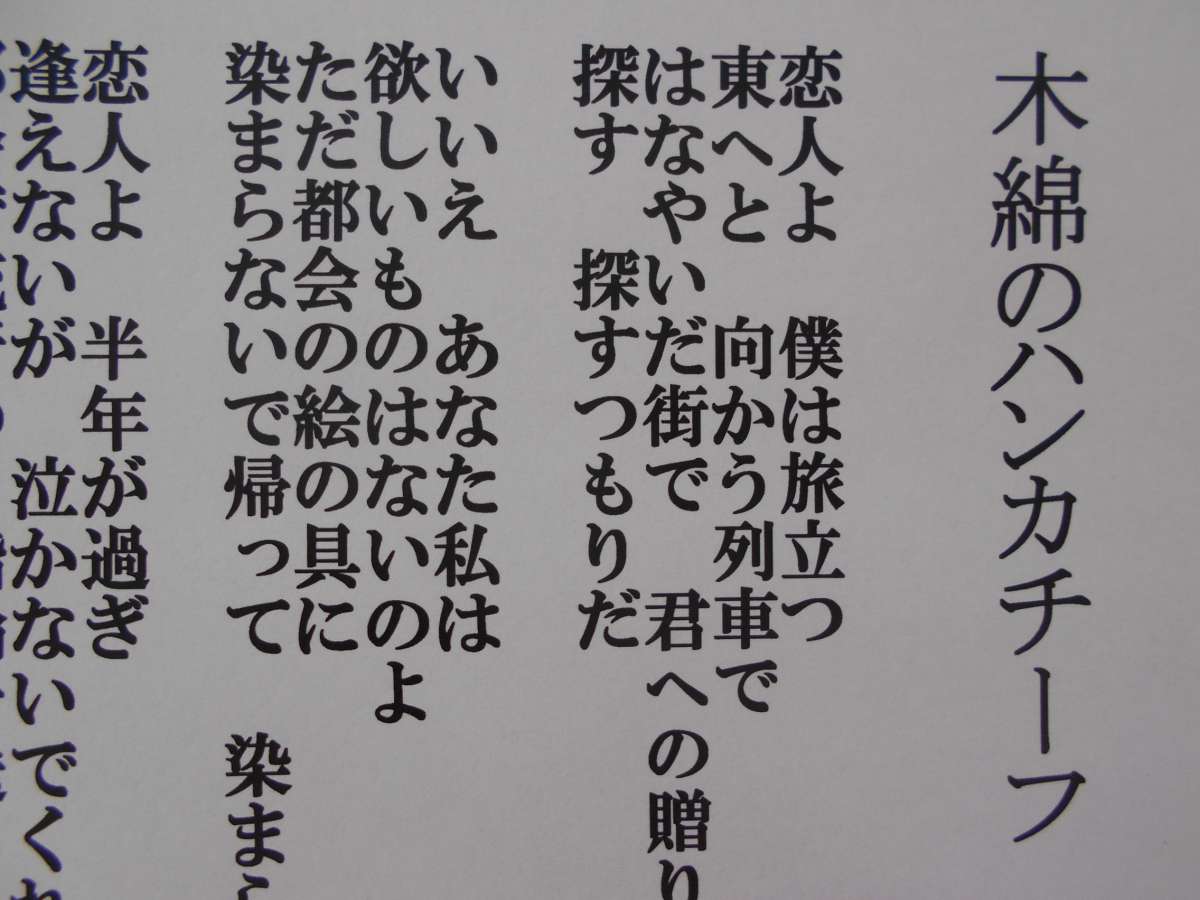 木綿のハンカチーフ
恋人よ　僕は旅立つ
東へと　向かう列車で
はなやいだ街で　君への贈り
探す　探すつもりだ
いいえ　あなた私は
欲しいものはないのよ
ただ都会の絵の具に
染まらないで帰って　染まら
恋人よ　半年が過ぎ
逢えないが　泣かないでくれ